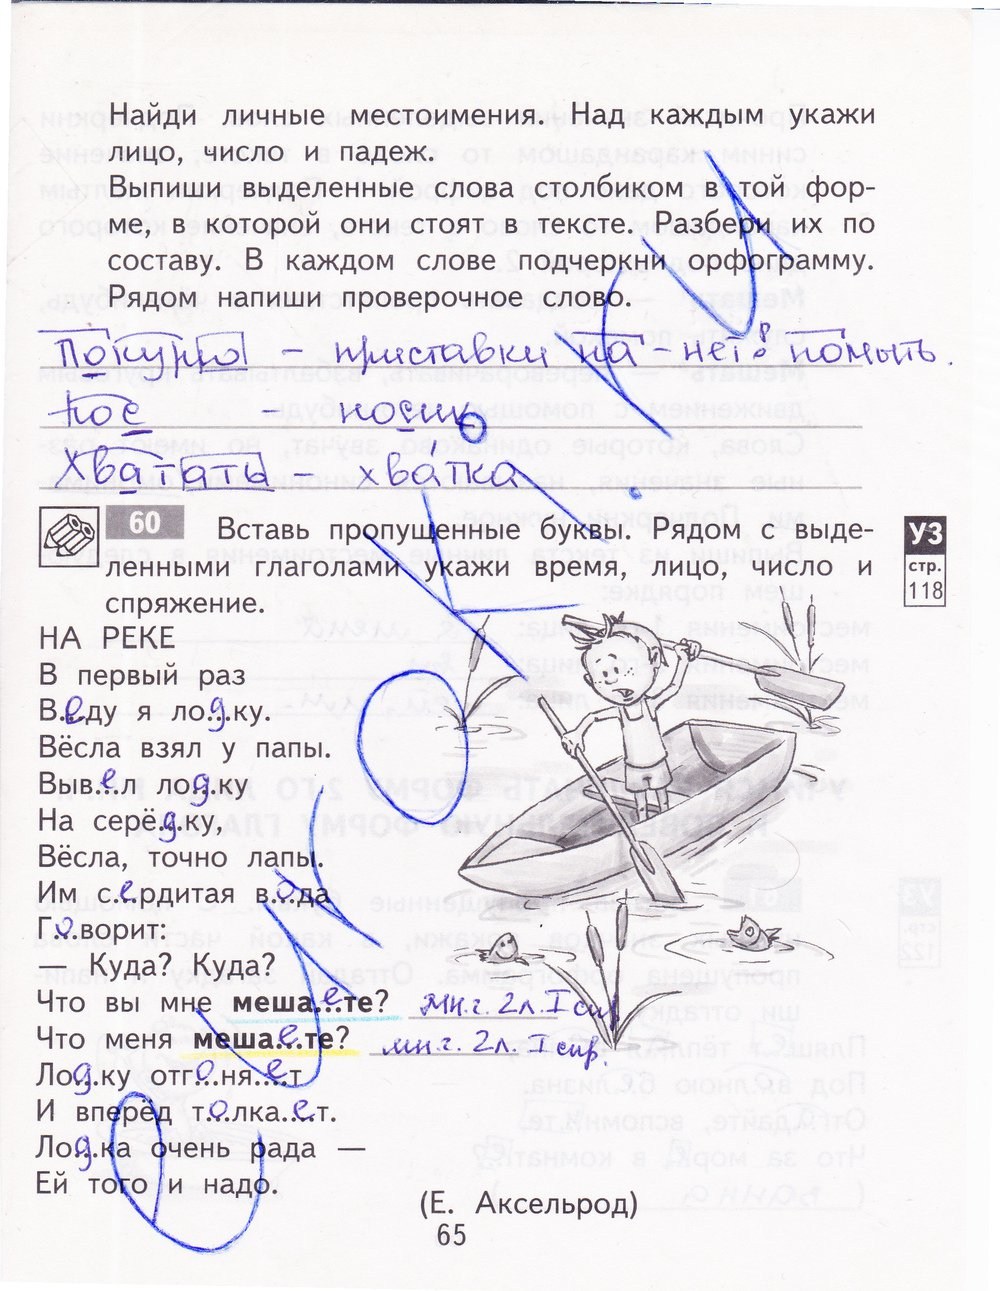 Найди личные местоимения. Над каждым укажи
лицо, число и падеж.
Выпиши выделенные слова столбиком в той фор-
ме, в которой они стоят в тексте. Разбери их по
составу. В каждом слове подчеркни орфограмму.
Рядом напиши проверочное слово.
– приставки па – нет! помыть.
Нос –
Хватать – хватка
60 Вставь пропущенные буквы. Рядом с выде-
ленными глаголами укажи время, лицо, число и
спряжение.
УЗ
стр.
118
НА РЕКЕ
В первый раз
Веду я лодку.
Вёсла взял у папы.
Вывел лодку
На серёдку,
Вёсла, точно лапы.
Им сердитая вода
Говорит:
— Куда? Куда?
Что вы мне мешаете? мн.ч. 2л. I
Что меня мешаете? мн.ч. 2л. I спр.
Лодку отгоняет
И вперёд толкает.
Лодка очень рада —
Ей того и надо.
(Е. Аксельрод)
65